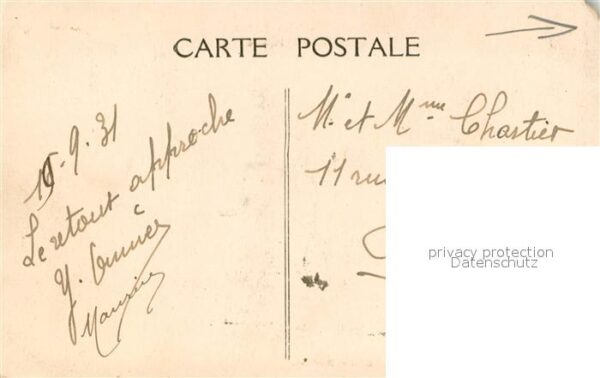 CARTE POSTALE
15.9.31
Le retour approche
Y.
M. et Mme Chastier
11 rue
privacy protection
Datenschutz